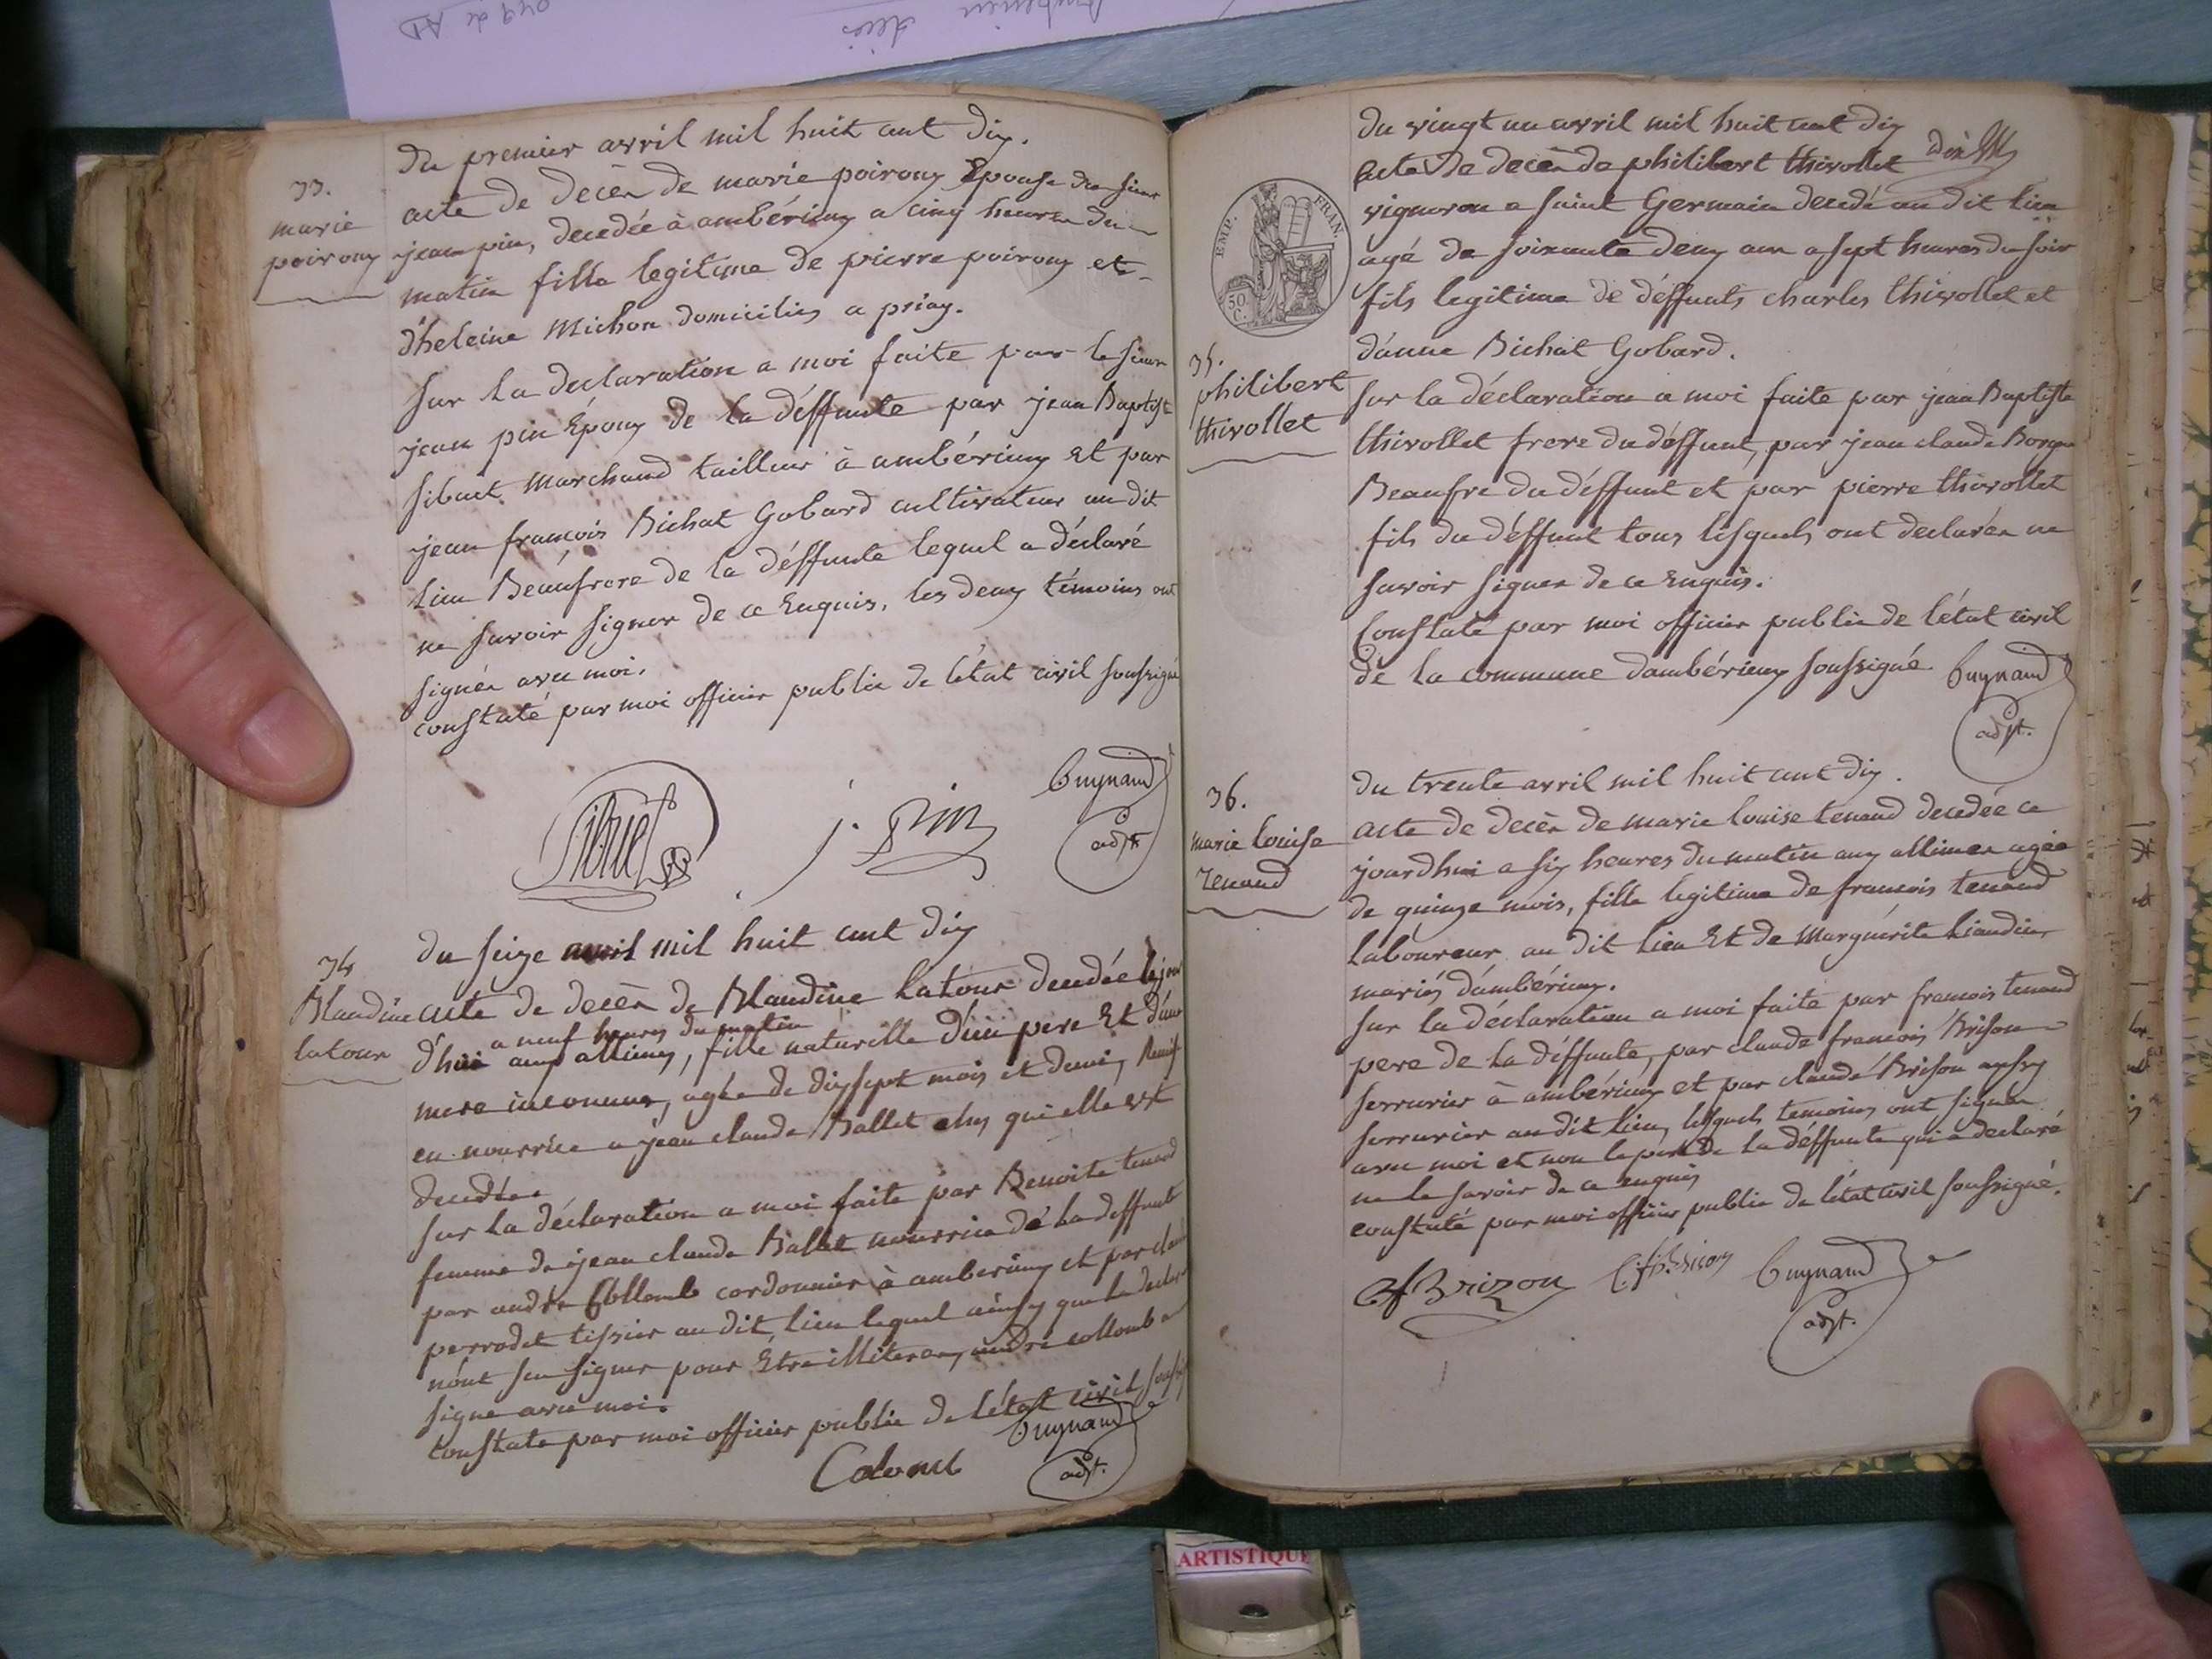 33.
marie
poirouy
du premier avril mil huit cent dix.
acte de décèn de marie poirouy Épouse du sieur
jean pin, decedée à ambérieux a cinq heures du
matin fille legitime de pierre poirouy et
d'heleine Michon domiciliés a priay.
sur la declaration a moi faite par le sieur
jean pin Époux de la déffunte par jean Baptiste
sibuet marchand tailleur à ambérieux Et par
jean francois Bichat Gobard cultivateur au dit
lieu Beaufrere de la déffunte lequel a déclaré
ne savoir signer de ce Enquis, les deux témoins ont
signén avec moi.
constaté par moi officier public de létat civil soussigné
Sibuet
j. Pin
Cuynand
adjt.
34
Blandine
latour
du seize avril mil huit cent dix
acte de decèn de Blandine Latour decedée ce jour
a neuf heures du matin
d'hui aux allimes, fille naturelle d'un pere Et d'une
mere inconnus, agée de dix sept mois et demi,
en nourrice a jean claude Ballet chez qui elle est
decedée
sur la déclaration a moi faite par Benoite tenand
femme de jean claude Ballet nourrice de la deffunte
par andré Collomb cordonnier à amberieux et par
perrodet tissier au dit lieu lequel ainsy que la
nont su signer pour Être illiteren, andré collomb a
signe avec moi.
constaté par moi officier public de létat civil
Colomb
Cuynand
adjt.
EMP. FRAN.
50 C.
35.
philibert
thivollet
du vingt un avril mil huit cent dix
acte de decèn de philibert thivollet dit
vigneron a saint Germain decedé au dit lieu
agé de soixante deux ans a sept heures du soir
fils legitime de déffunts charles thivollet et
d'anne Bichat Gobard.
sur la déclaration a moi faite par jean Baptiste
thivollet frere du déffunt, par jean claude
Beaufre du déffunt et par pierre thivollet
fils du déffunt tous lesquels ont declarén ne
savoir signer de ce Enquis.
Constaté par moi officier public de létat civil
de la commune dambérieux soussigné.
Cuynand
adjt.
36.
marie louise
tenand
du trente avril mil huit cent dix.
acte de decèn de marie louise tenand decedée ce
jourdhui a six heures du matin aux allimes agée
de quinze mois, fille legitime de francois tenand
laboureur au dit lieu Et de Marguérite Liaudin
mariés d'ambérieux.
sur la déclaration a moi faite par francois tenand
pere de la déffunte, par claude francois Brison
serrurier à ambérieux et par claude Brison aussy
serrurier au dit lieu, lesquels temoins ont signén
avec moi et non le pere de la déffunte qui a declaré
ne le savoir de ce enquis
constaté par moi officier public de létat civil soussigné.
Brizon
Brison
Cuynand
adjt.
ARTISTIQUE